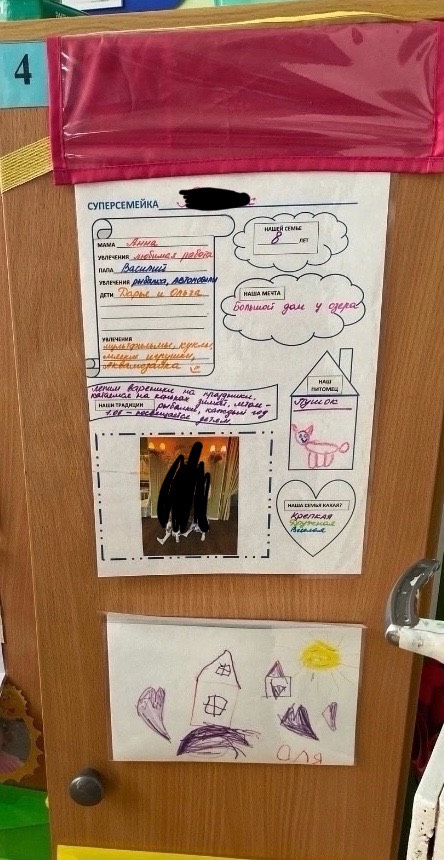 4
СУПЕРСЕМЕЙКА
МАМА Анна
УВЛЕЧЕНИЯ любимая работа
ПАПА Василий
УВЛЕЧЕНИЯ рыбалка, автомобили
ДЕТИ Дарья и Ольга
УВЛЕЧЕНИЯ
мультфильмы, куклы,
мягкие игрушки,
Аквамозаика
НАШЕЙ СЕМЬЕ
8 ЛЕТ
НАША МЕЧТА
Большой дом у озера
лепим вареники на праздники,
катаемся на коньках зимой, летом -
НАШИ ТРАДИЦИИ рыбалка, каждый год
1.06 - посвящается детям
НАШ
ПИТОМЕЦ
Пушок
НАША СЕМЬЯ КАКАЯ?
Крепкая
Дружная
Весёлая
Оля